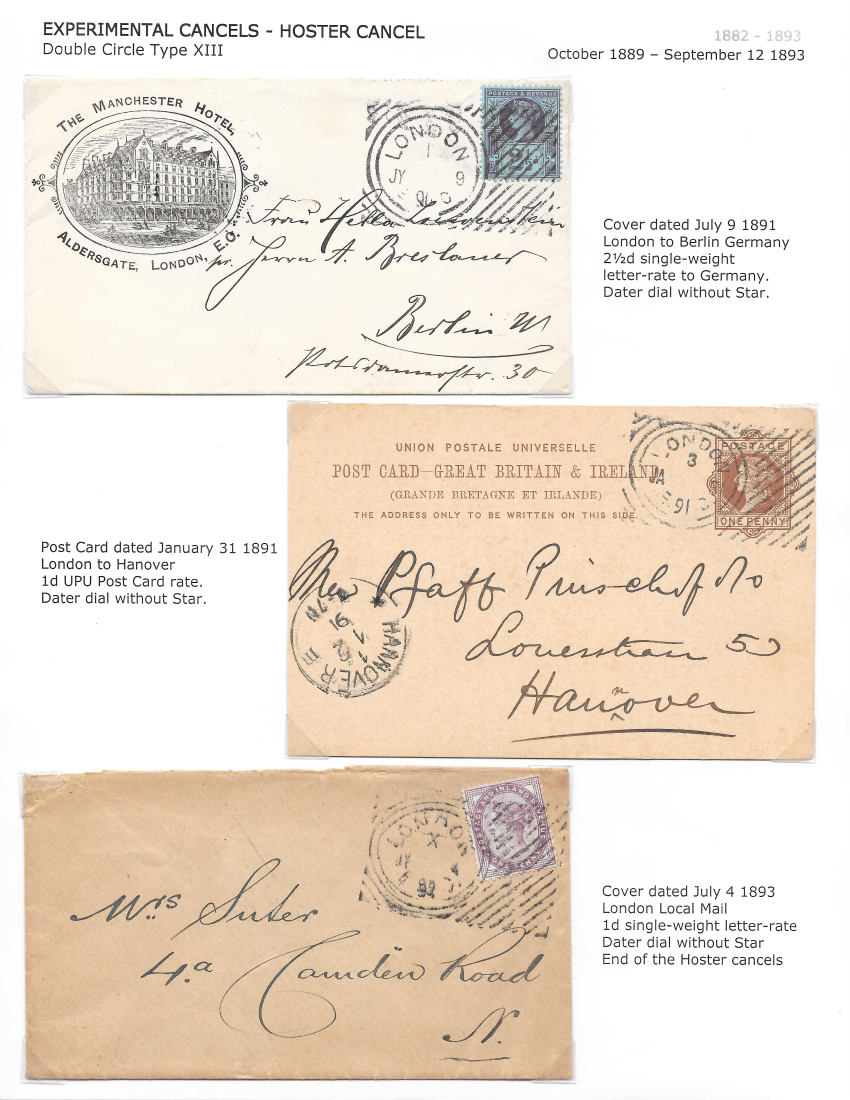 EXPERIMENTAL CANCELS - HOSTER CANCEL
1882 - 1893
Double Circle Type XIII
October 1889 – September 12 1893
THE MANCHESTER HOTEL,
ALDERSGATE, LONDON, E.C.
LONDON
1
JY 9
POSTAGE & REVENUE
Frau Hella
pr. Herrn A. Breslauer
Berlin W
Potsdamerstr. 30
Cover dated July 9 1891
London to Berlin Germany
2½d single-weight
letter-rate to Germany.
Dater dial without Star.
UNION POSTALE UNIVERSELLE
POST CARD–GREAT BRITAIN & IRELAND
(GRANDE BRETAGNE ET IRLANDE)
THE ADDRESS ONLY TO BE WRITTEN ON THIS SIDE.
LONDON
3
JA
91
POSTAGE
ONE PENNY
Pfaff
50
Hannover
HANNOVER
1 2
91
Post Card dated January 31 1891
London to Hanover
1d UPU Post Card rate.
Dater dial without Star.
LONDON
X
JY 4
POSTAGE AND INLAND REVENUE
ONE PENNY
Mrs Suter
4.a Camden Road
N.
Cover dated July 4 1893
London Local Mail
1d single-weight letter-rate
Dater dial without Star
End of the Hoster cancels